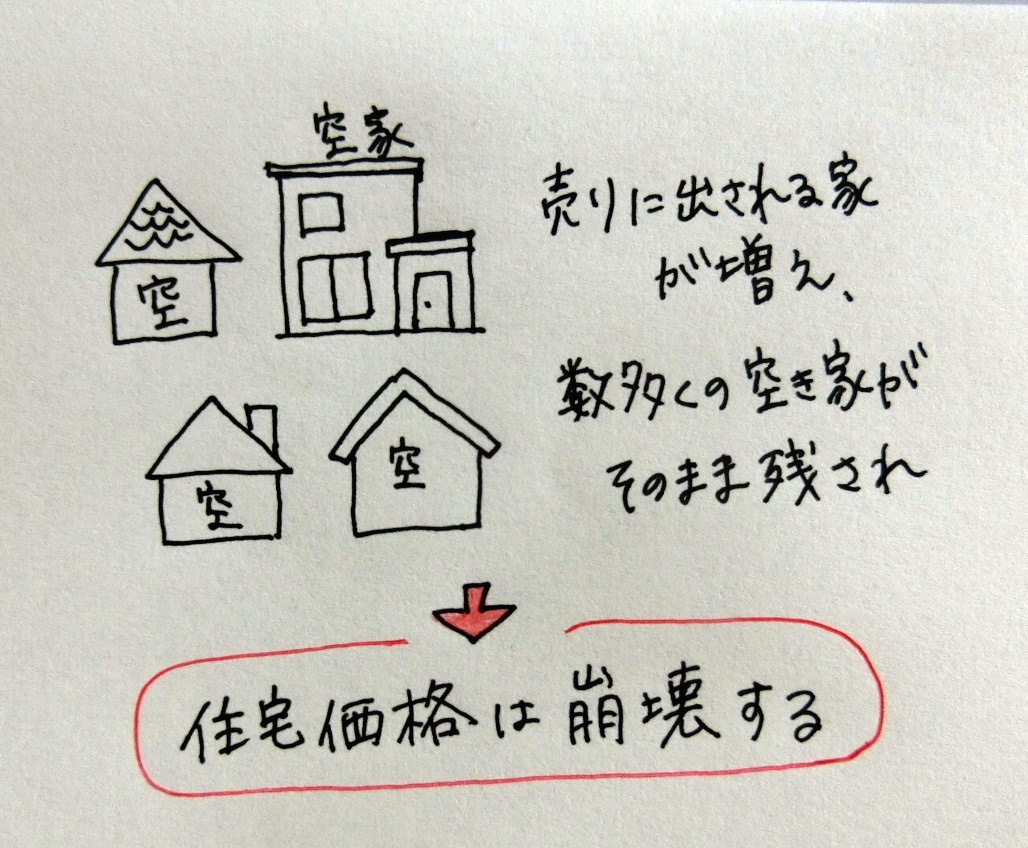 空家
空
空
空
売りに出される家
が増え、
数多くの空き家が
そのまま残され
住宅価格は崩壊する